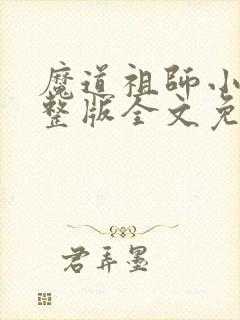 魔道祖师小
整版全文免
君弄墨